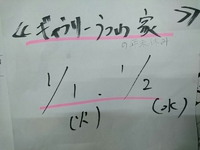 《ギャラリーうつの家》
1/1・1/2
(火) (水)